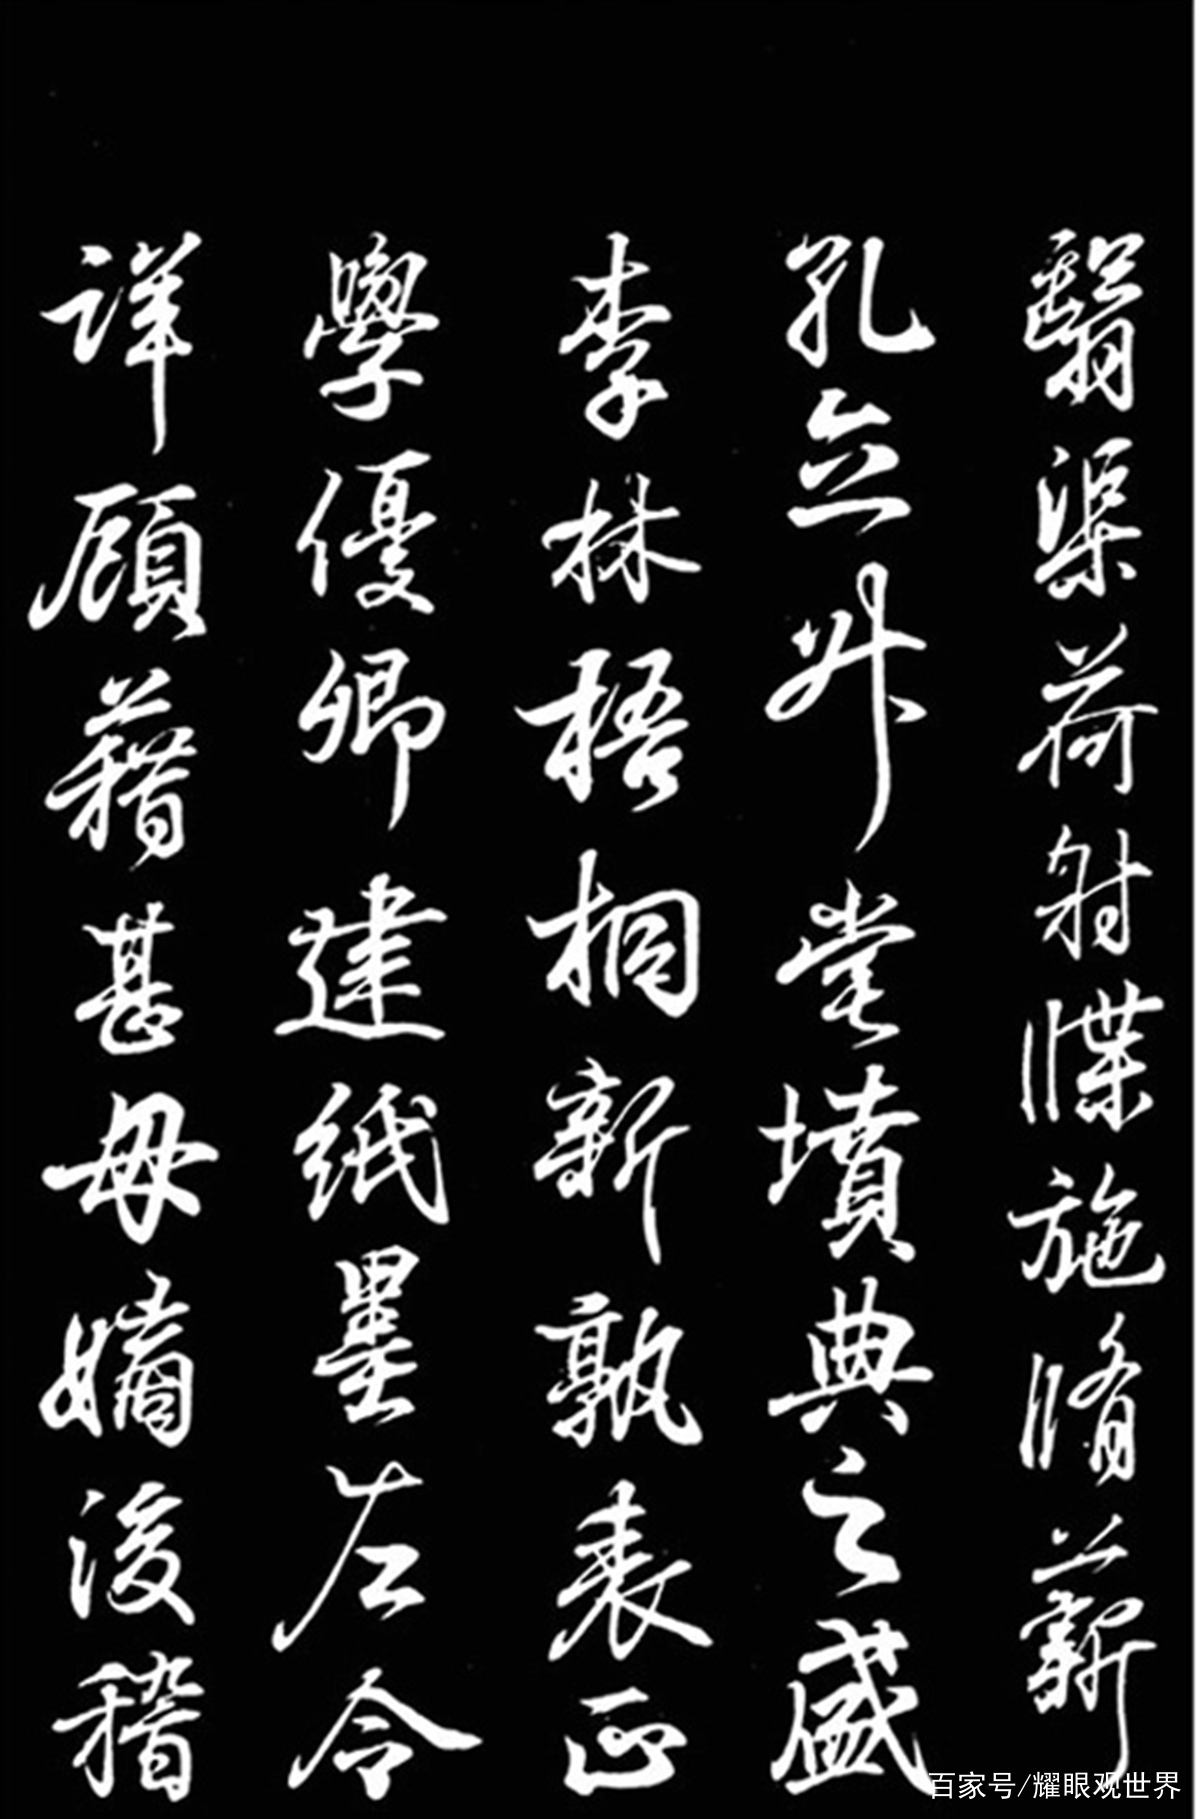 翳渠荷射牒施脩薪
孔立升堂墳典之盛
李林梧桐新孰表正
學優卿建紙墨左令
詳顧藉甚毋嫡後稽
百家号/耀眼观世界